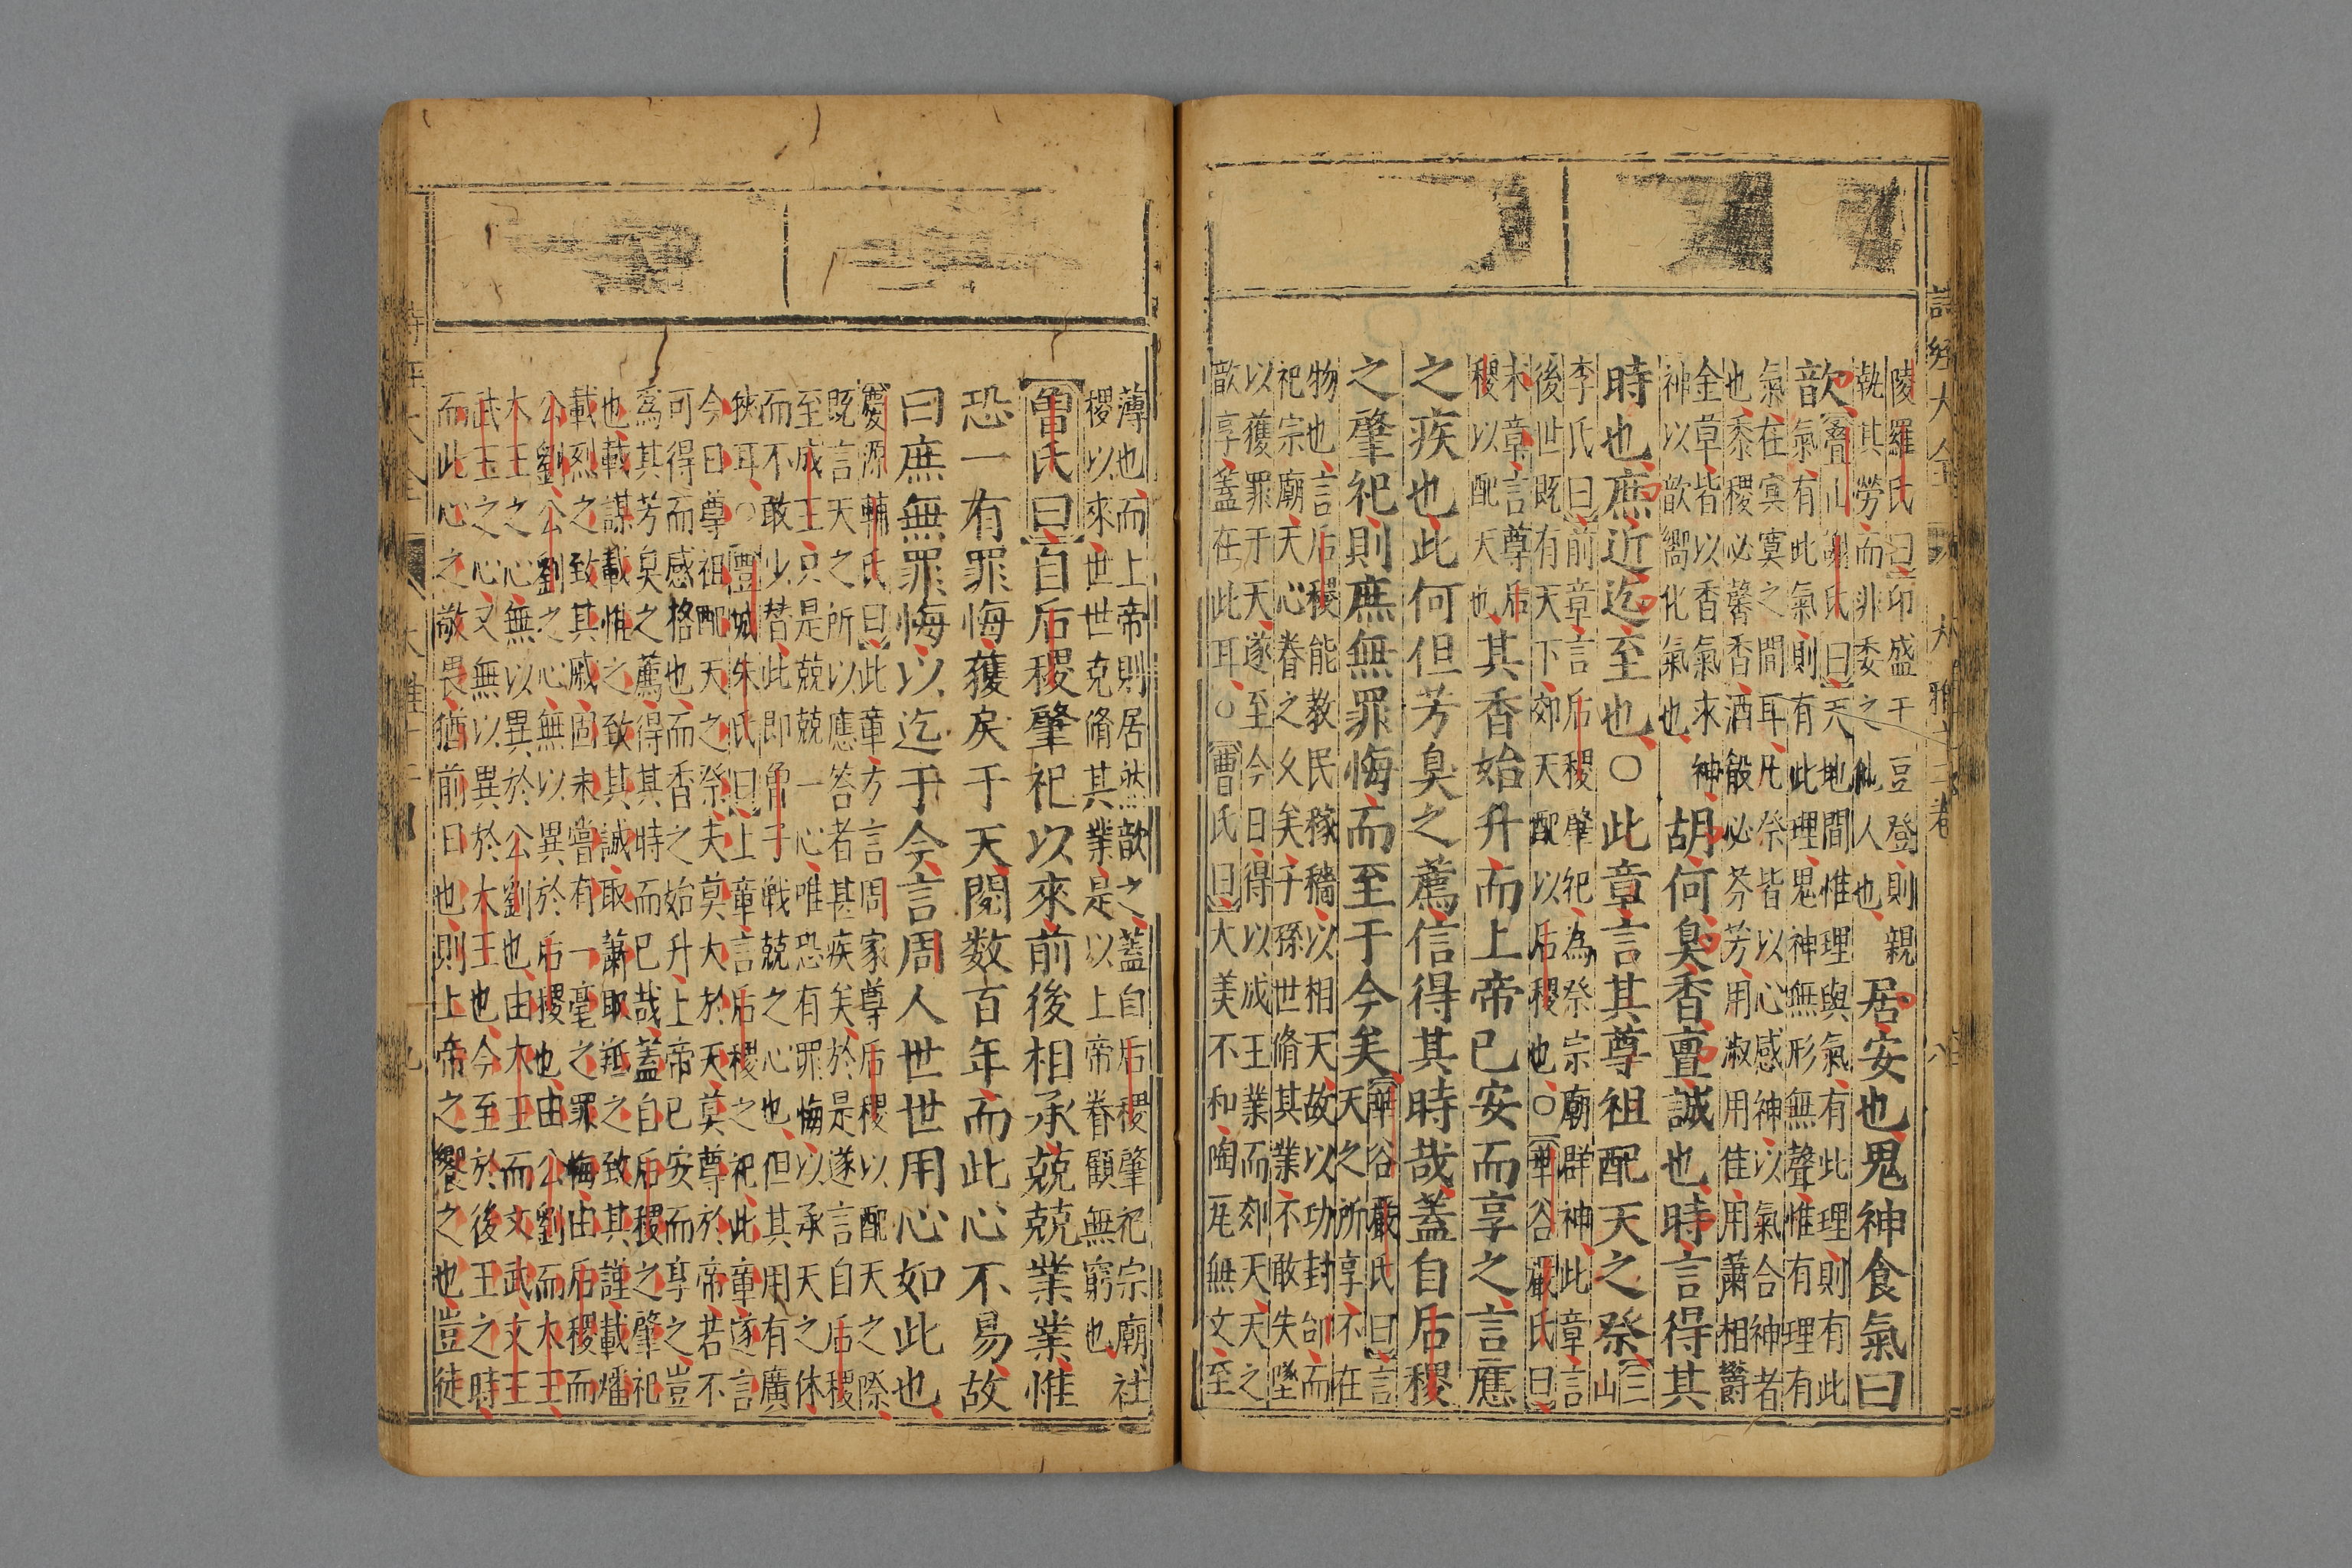 詩經大全 大雅 卷 八
陵羅氏曰卬盛于豆登則親
執其勞而非委之他人也
居安也鬼神食氣曰
歆
疊山謝氏曰天地間惟理與氣有此理則有此
氣有此氣則有此理鬼神無形無聲惟有理有
氣在冥冥之間耳凡祭皆以心感神以氣合神者
也黍稷必馨香酒殽必芬芳用淑用佳用蕭相鬱
金草皆以香氣求神
神以歆嚮化氣也
胡何臭香亶誠也時言得其
時也庶近迄至也○此章言其尊祖配天之祭
三
山
李氏曰前章言后稷肇祀為祭宗廟群神此章言
後世既有天下郊天配以后稷也○華谷嚴氏曰
末章言尊后
稷以配天也
其香始升而上帝已安而享之言應
之疾也此何但芳臭之薦信得其時哉蓋自后稷
之肇祀則庶無罪悔而至于今矣
華谷嚴氏曰言
天之所享不在
物也言后稷能教民稼穡以相天故以功封邰而
祀宗廟天心眷之久矣子孫世脩其業不敢失墜
以獲罪于天遂至今日得以成王業而郊天天之
歆享蓋在此耳○曹氏曰大美不和陶瓦無文至
薄也而上帝則居然歆之蓋自后稷肇祀宗廟社
稷以來世世克脩其業是以上帝眷顧無窮也
曾氏曰自后稷肇祀以來前後相承兢兢業業惟
恐一有罪悔獲戾于天閱数百年而此心不易故
曰庶無罪悔以迄于今言周人世世用心如此也
慶源輔氏曰此章方言周家尊后稷以配天之際
既言天之所以應荅者甚疾矣於是遂言自后稷
至成王只是兢兢一心唯恐有罪悔以承天之休
而不敢少替此即曾子戰兢之心也但其用有廣
狹耳○豐城朱氏曰上章言后稷之祀此章遂言
今日尊祖配天之祭夫莫大於天莫尊於帝若不
可得而感格也而香之始升上帝已安而享之豈
爲其芳臭之薦得其時而已哉蓋自后稷之肇祀
也載謀載惟之致其誠取蕭取羝之致其謹載燔
載烈之致其戚固未嘗有一毫之罪悔由后稷而
公劉公劉之心無以異於后稷也由公劉而大王
大王之心無以異於公劉也由大王而文武文王
武王之心又無以異於大王也今至於後王之時
而此心之敬畏猶前日也則上帝之饗之也豈徒